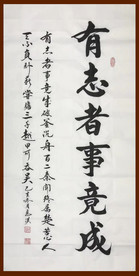 有志者事竟成
有志者事竟成破釜沉舟百二秦關終屬楚苦心人
天不負卧薪嘗膽三千越甲可吞吳